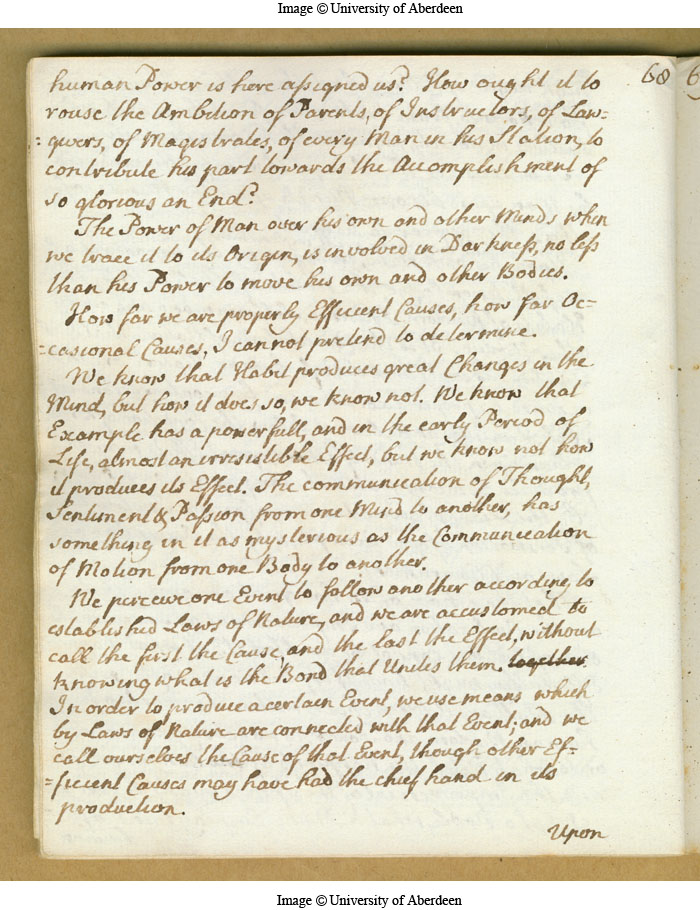 Image © University of Aberdeen
68
human Power is here assigned us? How ought it to
rouse the Ambition of Parents, of Instructors, of Law=
=givers, of Magistrates, of every Man in his Station, to
contribute his part towards the Accomplishment of
so glorious an End?
The Power of Man over his own and other Minds when
we trace it to its Origin, is involved in Darkness, no less
than his Power to move his own and other Bodies.
How far we are properly Efficient Causes, how far Oc=
=casional Causes, I cannot pretend to determine.
We know that Habit produces great Changes in the
Mind, but how it does so, we know not. We know that
Example has a powerfull, and in the early Period of
Life, almost an irresistible Effect, but we know not how
it produces its Effect. The communication of Thought,
Sentiment & Passion from one Mind to another, has
something in it as mysterious as the Communication
of Motion from one Body to another.
We perceive one Event to follow another according to
established Laws of Nature, and we are accustomed to
call the first the Cause, and the last the Effect, without
knowing what is the Bond that Unites them. together
In order to produce a certain Event, we use means which
by Laws of Nature are connected with that Event; and we
call ourselves the Cause of that Event, though other Ef=
=ficient Causes may have had the chief hand in its
production.
Upon
Image © University of Aberdeen